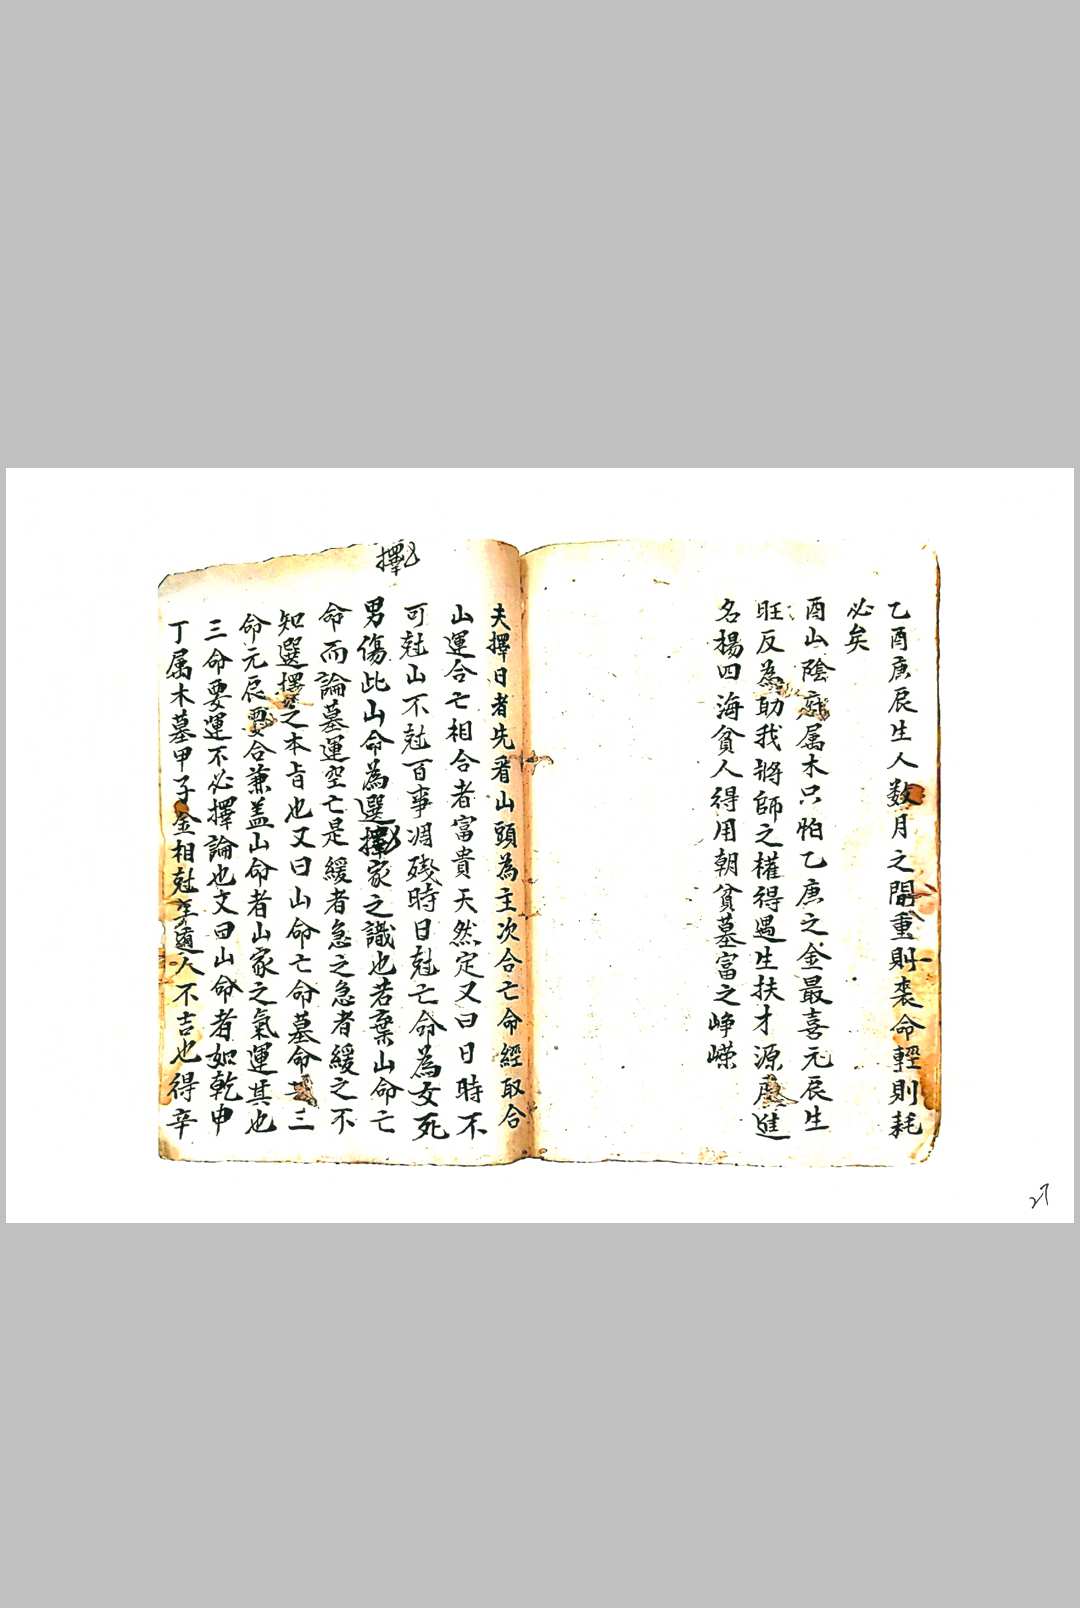 乙酉庚辰生人数月之間重則喪命輕則耗
必矣
酉山陰府属木只怕乙庚之金最喜元辰生
旺反為助我將師之權得遇生扶才源廣進
名楊四海貧人得用朝貧墓富之崢嶸
夫擇日者先看山頭為主次合亡命經取合
山運合亡相合者富貴天然定又曰日時不
可尅山不尅百事凋殘時日尅亡命為女死
男傷此山命為選擇家之識也若棄山命亡
擇
命而論墓運空亡是緩者急之急者緩之不
知選擇之本旨也又曰山命亡命墓命三
命元辰要合兼盖山命者山家之氣運其也
三命要運不必擇論也文曰山命者如乾申
丁属木墓甲子金相尅人不吉也得辛
27